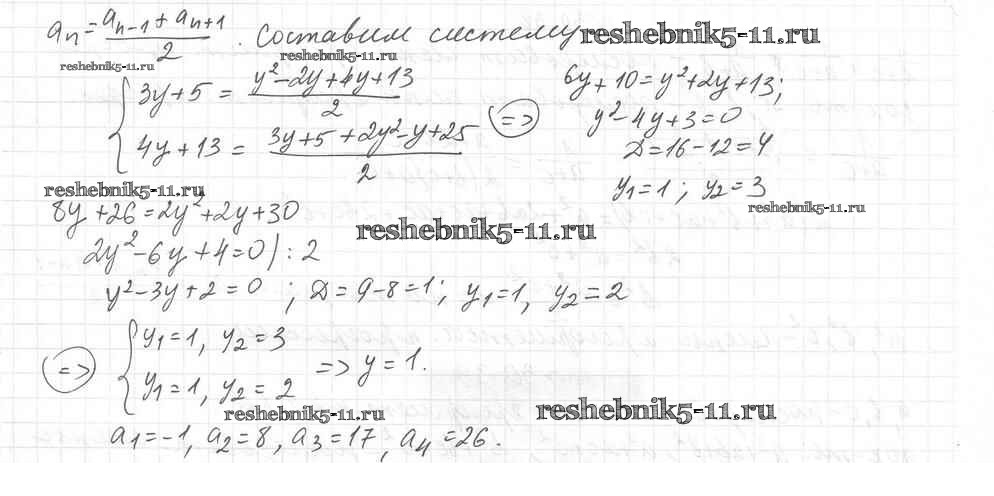 aₙ = (aₙ₋₁ + aₙ₊₁)/2 . Составим систему
reshebnik5-11.ru
reshebnik5-11.ru
reshebnik5-11.ru
{ 3y+5 = (y²-2y+4y+13)/2
{ 4y+13 = (3y+5+2y²-y+25)/2
=>
6y+10=y²+2y+13;
y²-4y+3=0
D=16-12=4
y₁=1; y₂=3
reshebnik5-11.ru
reshebnik5-11.ru
8y+26=2y²+2y+30
reshebnik5-11.ru
2y²-6y+4=0 | : 2
y²-3y+2=0 ; D=9-8=1; y₁=1, y₂=2
=> { y₁=1, y₂=3
{ y₁=1, y₂=2
=> y=1.
reshebnik5-11.ru
reshebnik5-11.ru
a₁=-1, a₂=8, a₃=17, a₄=26.